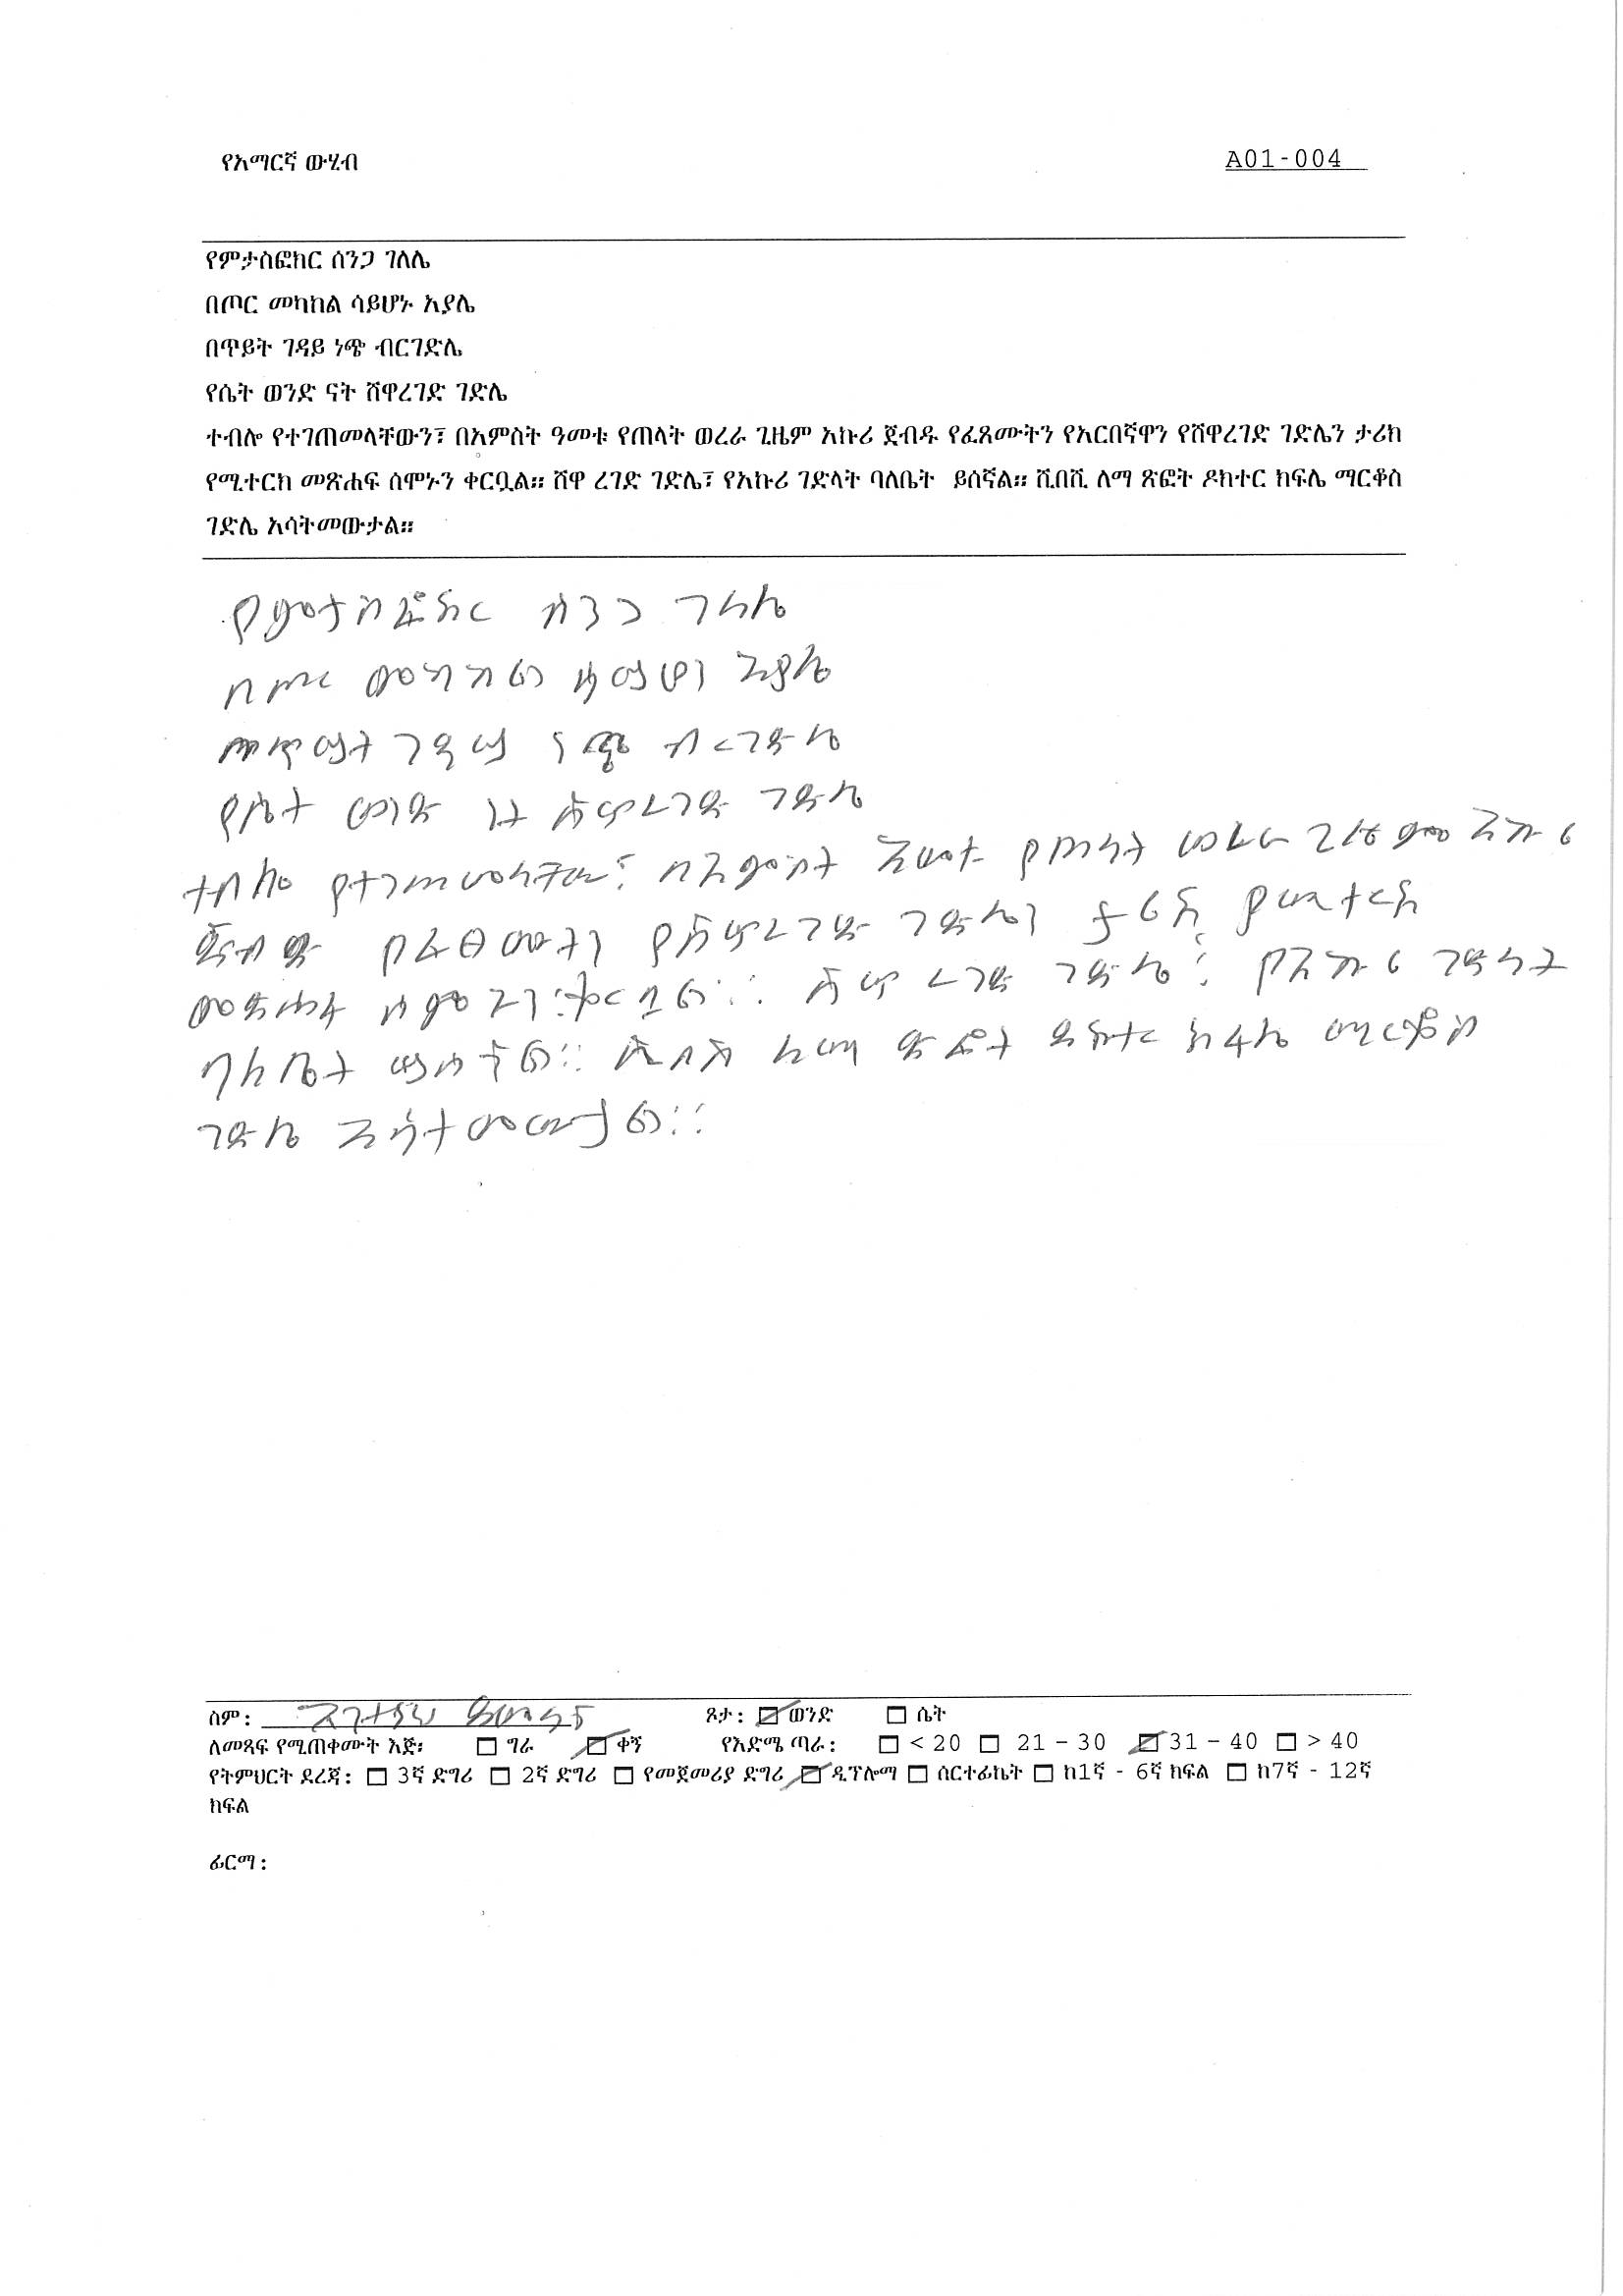 የአማርኛ ውሂብ A01-004
የምታስፎክር ሰንጋ ገለሌ
በጦር መካከል ሳይሆኑ አያሌ
በጥይት ገዳይ ነጭ ብርገድሌ
የሴት ወንድ ናት ሸዋረገድ ገድሌ
ተብሎ የተገጠመላቸውን፣ በአምስት ዓመቱ የጠላት ወረራ ጊዜም አኩሪ ጀብዱ የፈጸሙትን የአርበኛዋን የሸዋረገድ ገድሌን ታሪክ
የሚተርክ መጽሐፍ ሰሞኑን ቀርቧል። ሸዋ ረገድ ገድሌ፣ የአኩሪ ገድላት ባለቤት ይሰኛል። ሺበሺ ለማ ጽፎት ዶክተር ክፍሌ ማርቆስ
ገድሌ አሳትመውታል።
የምታስፎክር ሰንጋ ገለሌ
በጦር መካከል ሳይሆን አያሌ
በጥይት ገዳይ ነጭ ብርገድሌ
የሴት ወንድ ናት ሸዋረገድ ገድሌ
ተብሎ የተገጠመላቸው፣ በአምስት አመቱ የጠላት ወረራ ጊዜም አኩሪ
ጀብዱ የፈፀሙትን የሸዋረገድ ገድሌን ታሪክ የሚተርክ
መጽሐፍ ሰሞኑን ቀርቧል። ሸዋ ረገድ ገድሌ፣ የአኩሪ ገድላት
ባለቤት ይሰኛል። ሺበሺ ለማ ጽፎት ዶክተር ክፍሌ ማርቆስ
ገድሌ አሳትመውታል።
ስም: ጾታ: ወንድ ሴት
ለመጻፍ የሚጠቀሙት እጅ፡ ግራ ቀኝ የእድሜ ጣራ: < 20 21 – 30 31 – 40 > 40
የትምህርት ደረጃ: 3ኛ ድግሪ 2ኛ ድግሪ የመጀመሪያ ድግሪ ዲፕሎማ ሰርተፊኬት ከ1ኛ - 6ኛ ክፍል ከ7ኛ - 12ኛ
ክፍል
ፊርማ: